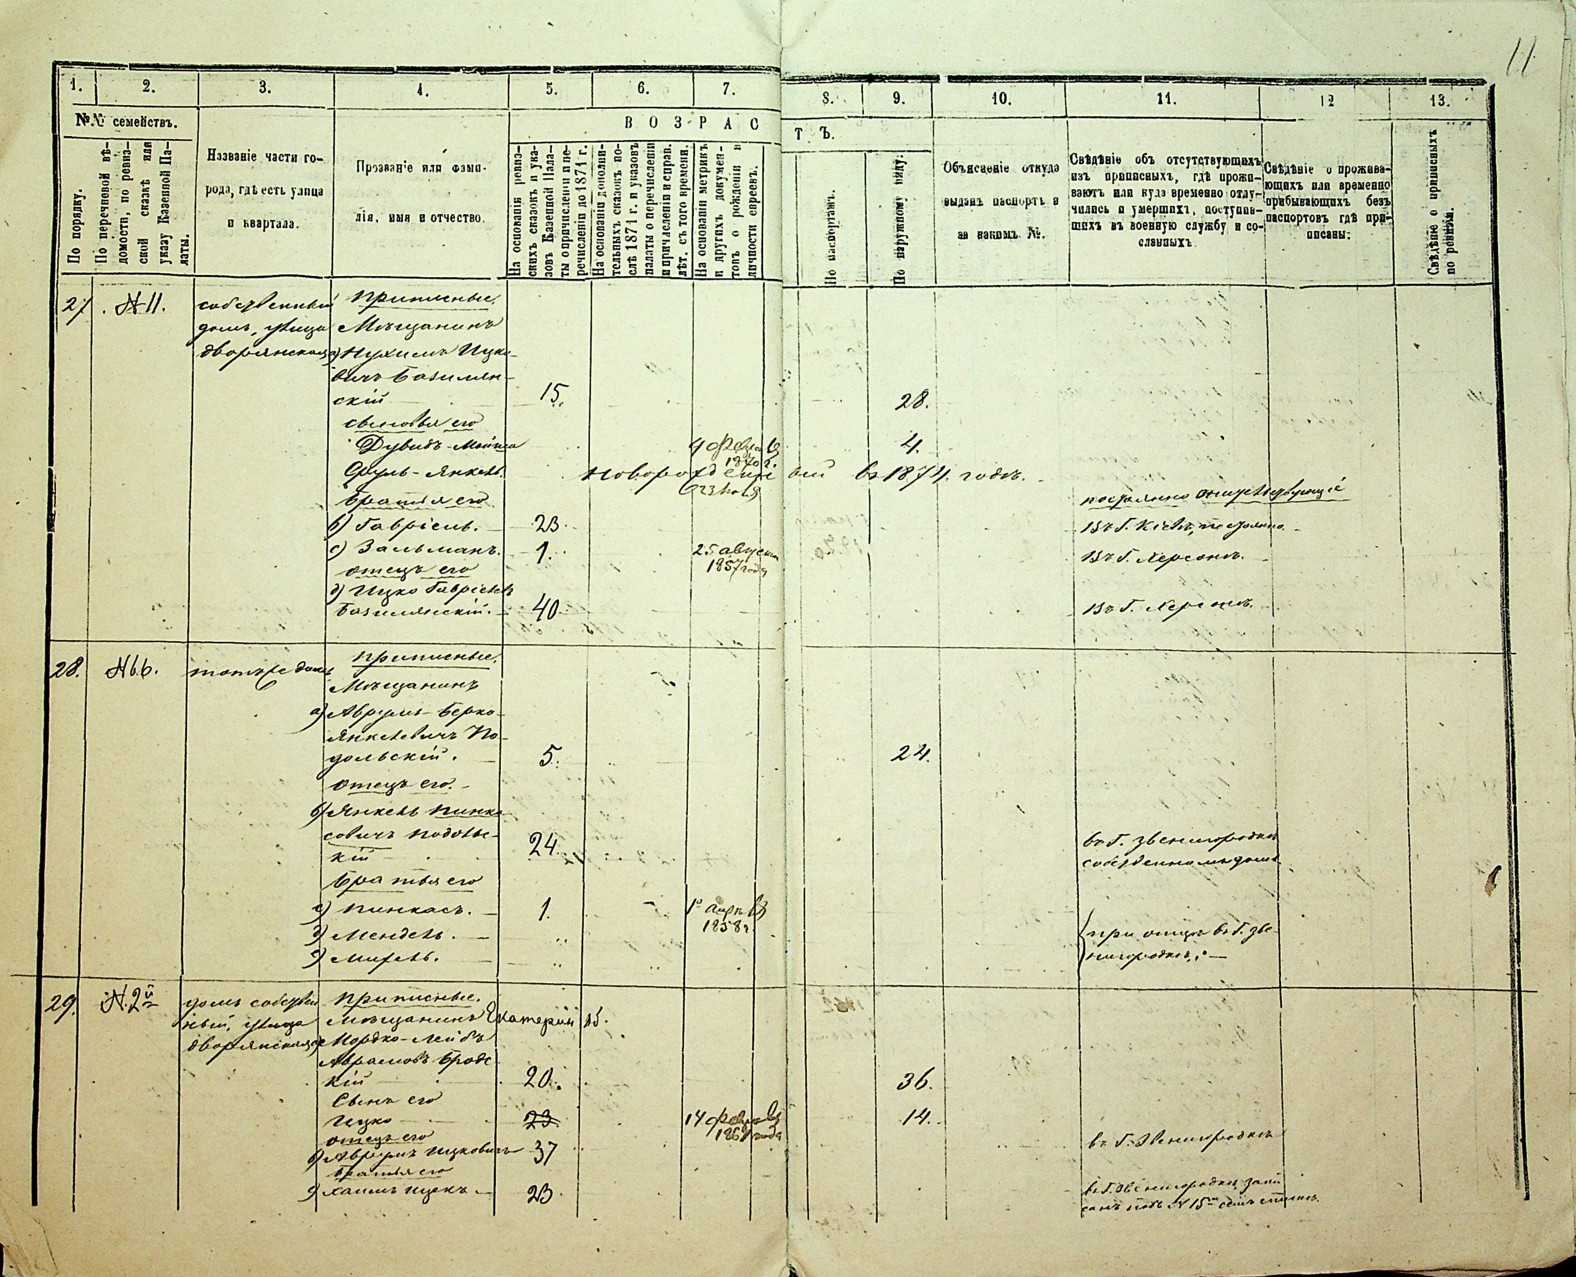 11
1. 2. 3. 4. 5. 6. 7. 8. 9. 10. 11. 12 13.
№№ семействъ.
По порядку.
По перечневой вѣ-
домости, по ревиз-
ской сказкѣ или
указу Казенной Па-
латы.
Названіе части го-
рода, гдѣ есть улица
и квартала.
Прозваніе или фами-
лія, имя и отчество.
ВОЗРАСТЪ.
На основаніи ревиз-
скихъ сказокъ и ука-
зовъ Казенной Пала-
ты о причисленіи и пе-
речисленіи до 1871 г.
На основаніи дополни-
тельныхъ сказокъ по-
слѣ 1871 г. и указовъ
палаты о перечисленіи
и причисленіи и справ.
лѣт. съ того времени.
На основаніи метрикъ
и другихъ докумен-
товъ о рожденіи и
личности евреевъ.
По паспортамъ.
По наружному виду.
Объясненіе откуда
выданъ паспортъ и
за какимъ №.
Свѣдѣніе объ отсутствующихъ
изъ приписныхъ, гдѣ прожи-
ваютъ или куда временно отлу-
чились и умершихъ, поступив-
шихъ въ военную службу и со-
сланныхъ
Свѣдѣніе о прожива-
ющихъ или временно
прибывающихъ безъ
паспортовъ гдѣ при-
писаны:
Свѣдѣніе о приписныхъ
по ревизіи.
27. № 11. собственный
домъ, улица
дворянская
приписные.
Мѣщанинъ
а) Нухимъ Ицко-
вичъ Базилян-
скій 15. 28.
сыновья его
Дувидъ-Мойша 4 Февраля 1870 г. 4.
Сруль-Янкель новорожденный въ 1874 годѣ.
Братья его постоянно жительствующіе
б) Гавріель. 23. въ г. Кіевѣ,
с) Зальманъ. 1. 25 августа 1857 года въ г. Херсонѣ.
отецъ его
д) Ицко Гавріель
Базилянскій. 40. въ г. Херсонѣ.
28. № 6. тотъ же домъ
приписные.
Мѣщанинъ
а) Аврумъ-Берко-
Янкелевичъ По-
дольскій. 5. 24.
отецъ его.
б) Янкель Пинка-
совичъ Подоль-
кій 24. въ г. Звенигородкѣ
собственномъ домѣ
Братья его
с) Пинкасъ. 1. 1го апрѣля 1858 г.
д) Мендель. при отцѣ въ г. Зве-
е) Мирель. нигородкѣ.
29. № 2й домъ собствен
ный, улица
дворянская
приписные.
мѣщанинъ Екатерин
а) Мордко-Лейбъ
Аврамовъ Бродс
кій 20. 36.
Сынъ его
Ицко 23 14 февраля 14.
отецъ его
б) Аврумъ Ицковичъ 37 въ г. Звенигородкѣ
Братья его
с) Хаимъ Ицекъ. 23. въ г. Звенигородкѣ запи
санъ подъ № 15